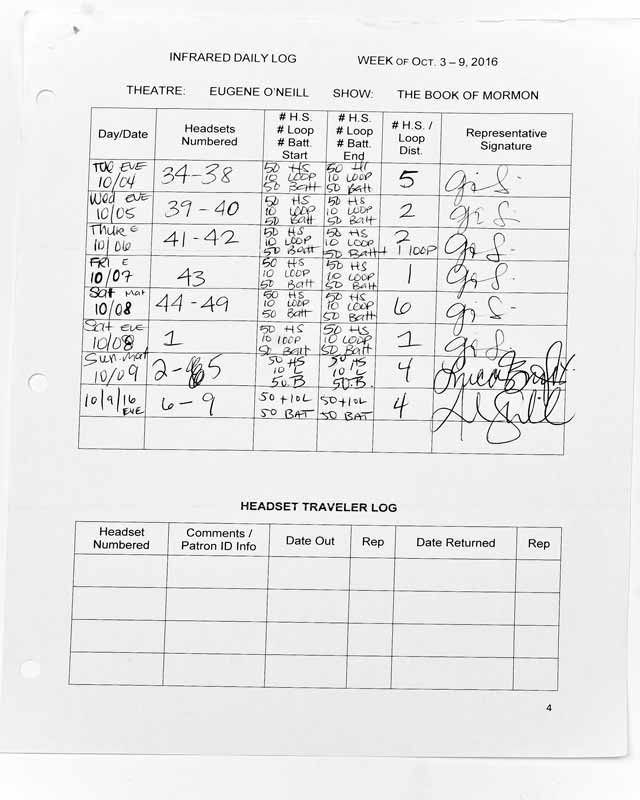 INFRARED DAILY LOG WEEK OF OCT. 3 – 9, 2016
THEATRE: EUGENE O'NEILL SHOW: THE BOOK OF MORMON
Day/Date Headsets Numbered # H.S. # Loop # Batt. Start # H.S. # Loop # Batt. End # H.S. / Loop Dist. Representative Signature
Tue EVE 10/04 34-38 50 HS 10 LOOP 50 Batt 50 HS 10 LOOP 50 Batt 5
Wed EVE 10/05 39-40 50 HS 10 LOOP 50 Batt 50 HS 10 LOOP 50 Batt 2
Thur E 10/06 41-42 50 HS 10 LOOP 50 Batt 50 HS 10 LOOP 50 Batt 2 + 1 LOOP
FRI E 10/07 43 50 HS 10 LOOP 50 Batt 50 HS 10 LOOP 50 Batt 1
Sat Mat 10/08 44-49 50 HS 10 LOOP 50 Batt 50 HS 10 LOOP 50 Batt 6
Sat EVE 10/08 1 50 HS 10 LOOP 50 Batt 50 HS 10 LOOP 50 Batt 1
Sun. mat 10/09 2-5 50 HS 10 L 50.B 50 HS 10 L 50.B. 4
10/9/16 EVE 6-9 50+10L 50 BAT 50+10L 50 BAT 4
HEADSET TRAVELER LOG
Headset Numbered Comments / Patron ID Info Date Out Rep Date Returned Rep
4